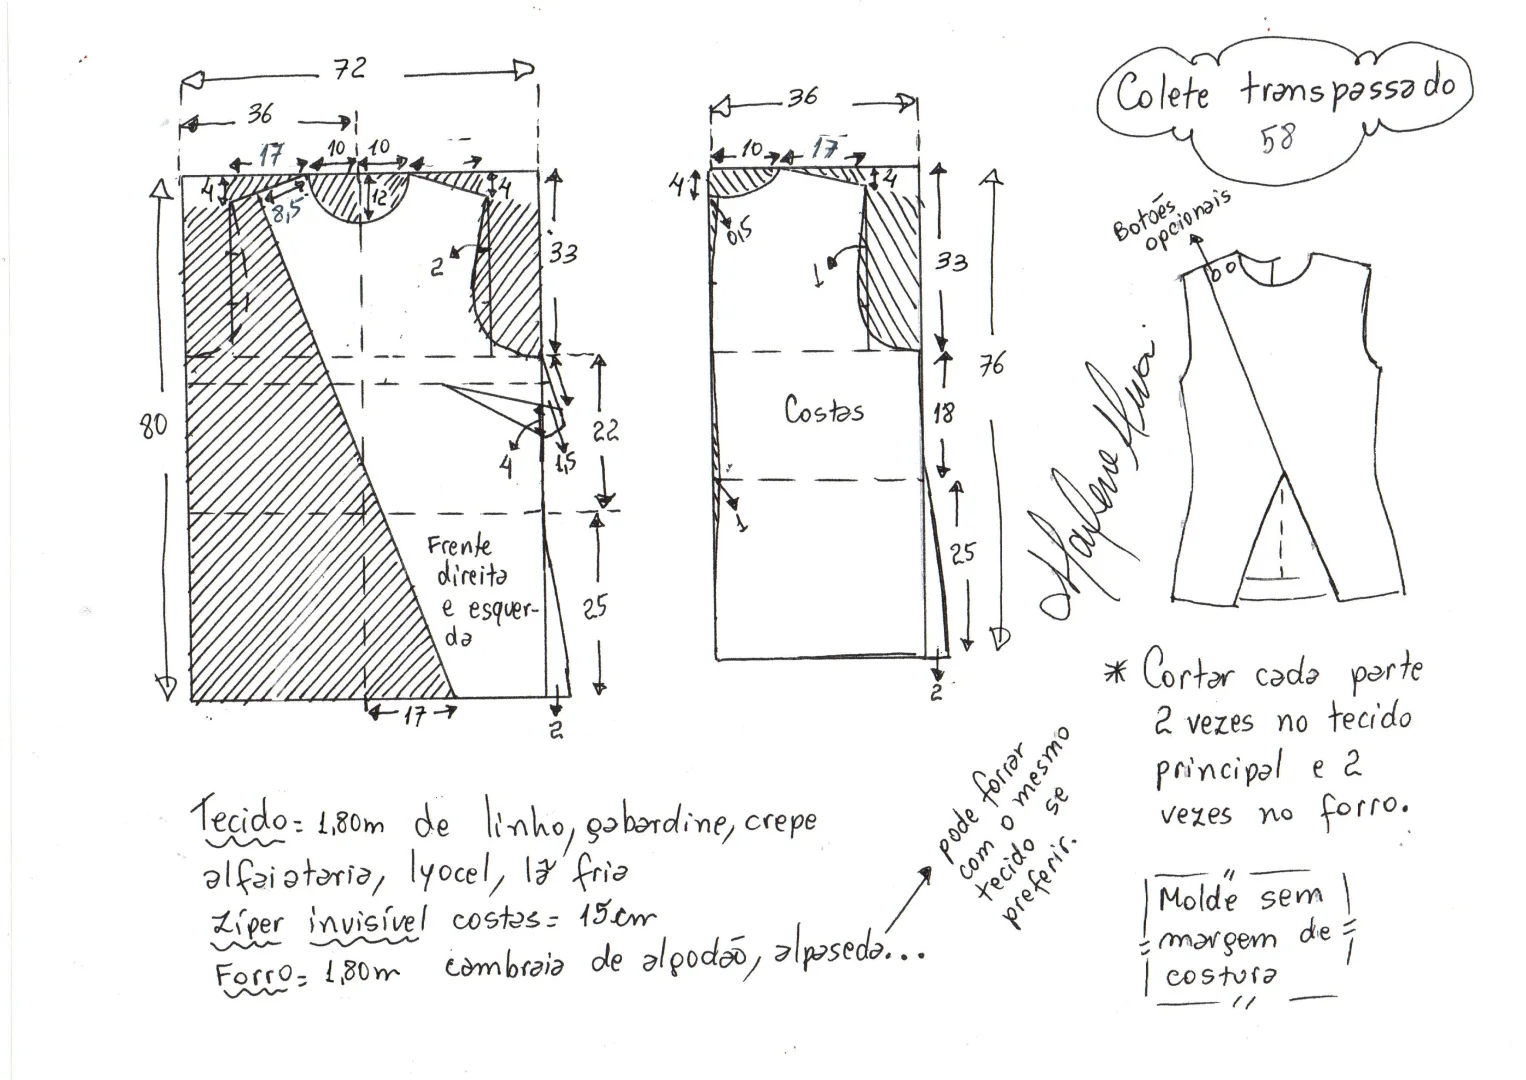 Colete transpassado
58
72
36
17
10
10
4
8,5
12
4
2
33
80
22
4
1,5
Frente
direita
e esquer-
da
25
17
2
36
10
17
4
4
0,5
1
33
76
Costas
18
1
25
2
Botões
opcionais
* Cortar cada parte
2 vezes no tecido
principal e 2
vezes no forro.
Molde sem
margem de
costura
Tecido= 1,80m de linho, gabardine, crepe
alfaiataria, lyocel, lã fria
Zíper invisível costas= 15cm
Forro= 1,80m cambraia de algodão, alpaseda...
pode forrar
com o mesmo
tecido se
preferir.